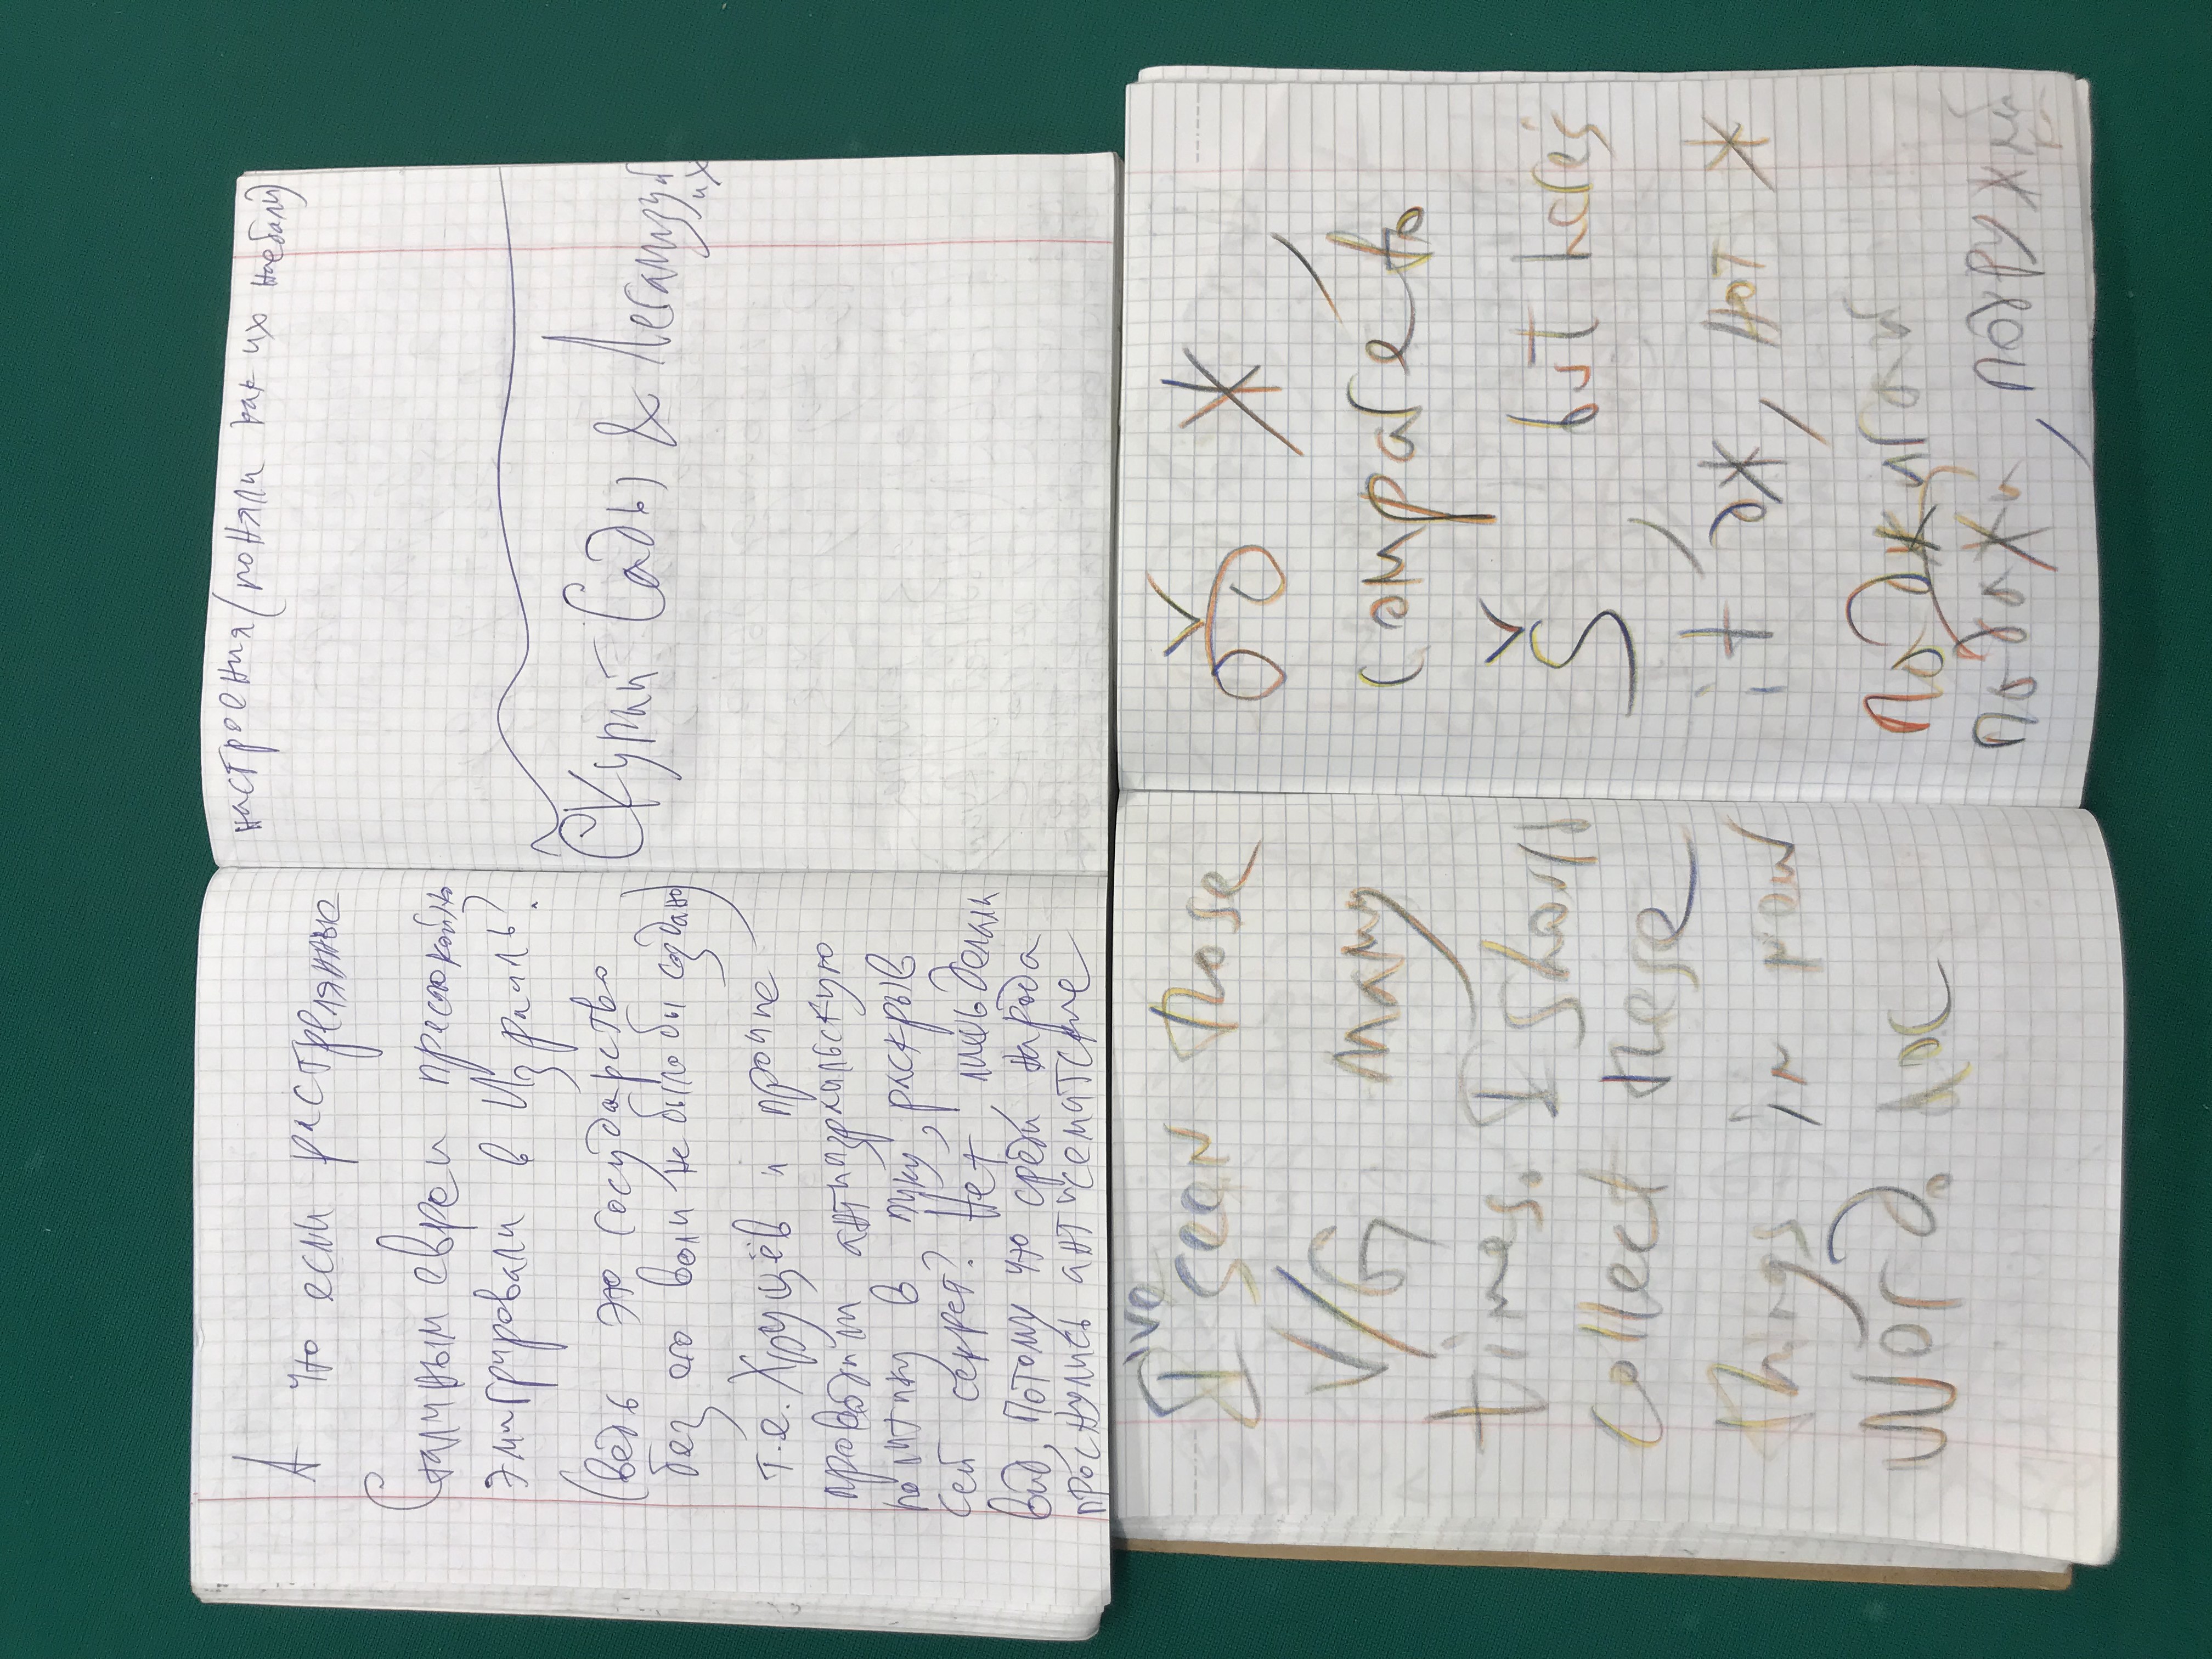 А что если растрелянные
Сталиным евреи преспокойно
эмигрировали в Израиль?
(ведь это государство
без его воли не было бы создано)
т.е. Хрущёв и прочие
проводили антиизраильскую
политику в пику, раскрыв
сей секрет? Нет, лишь делали
вид, потому что среди народа
проснулись антисематские
настроения (поняли как их наебали)
Скупай Сады & Легализуй
их
I've seen those
V/G many
times. I should
collect these
things in now
Word. doc
ж
compare to
Š, but here's
it дж, not ж
поджигай
подожги, подружий